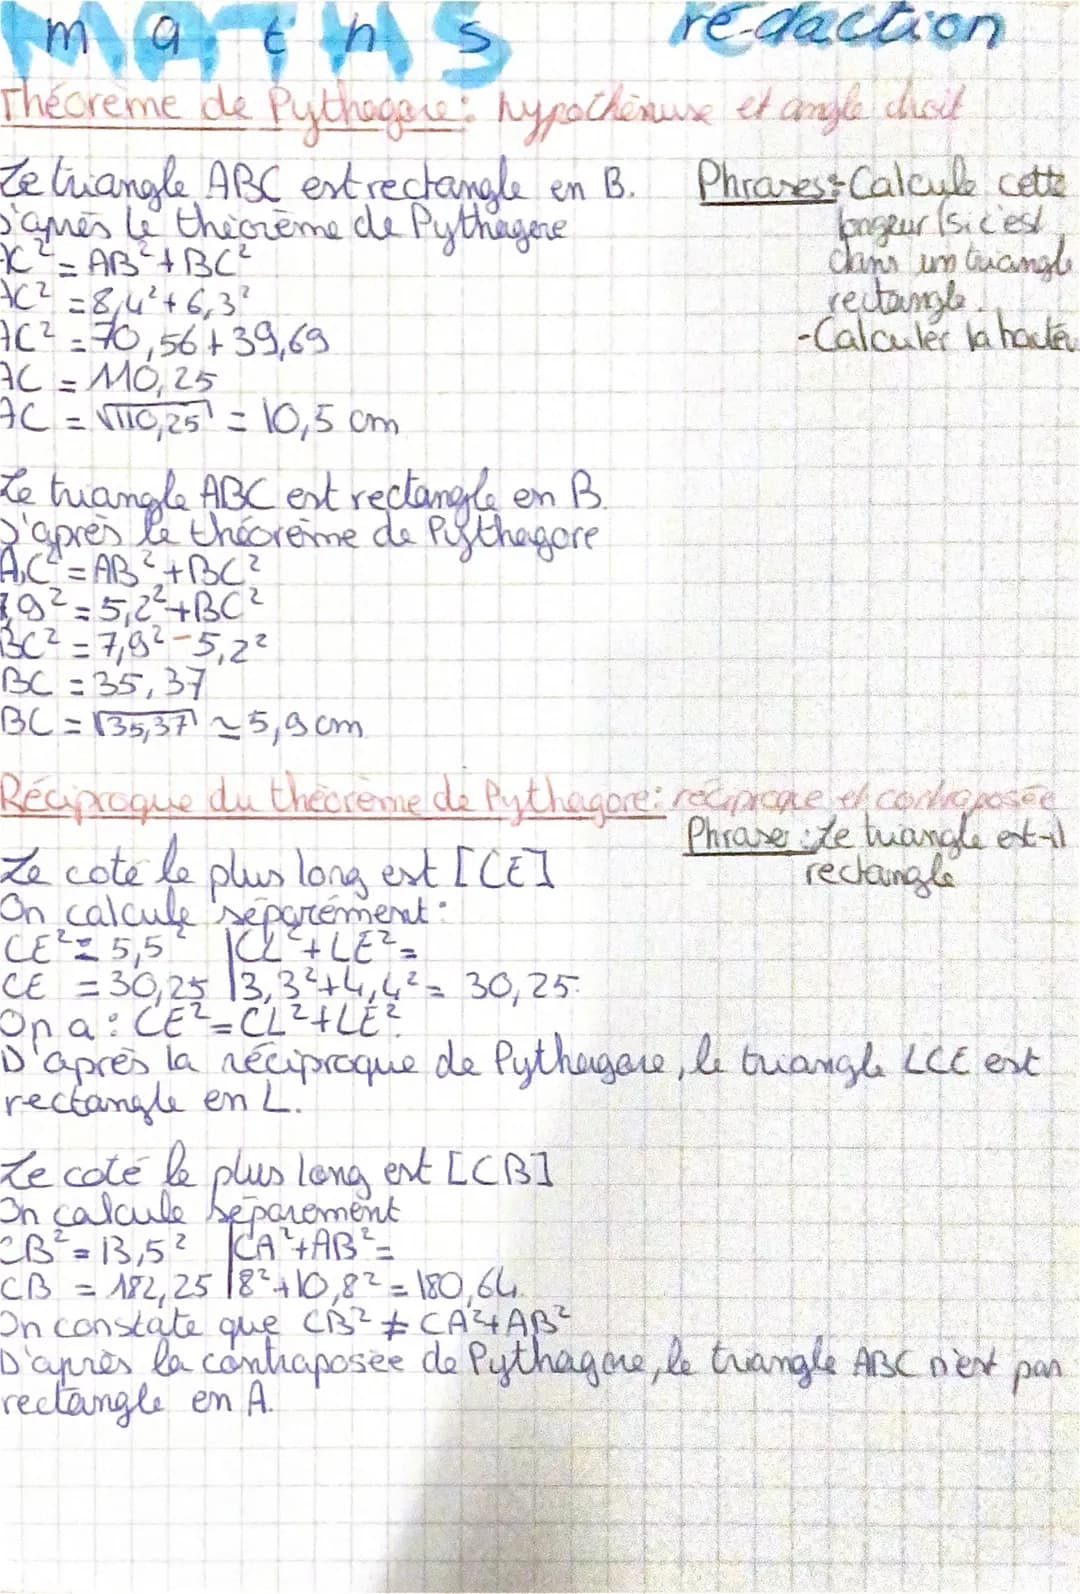 maths rédaction
Théorème de Pythagore: hypothénuse et angle droit
Le triangle ABC est rectangle en B.
D'après le théorème de Pythagore
AC² = AB² + BC²
AC² = 8,4² + 6,3²
AC² = 70,56 + 39,69
AC = 110,25
AC = √110,25 = 10,5 cm
Phrases: - Calcule cette
longeur (si c'est
dans un triangle
rectangle.
- Calculer la hauteur
Le triangle ABC est rectangle en B.
D'après le théorème de Pythagore
AC² = AB² + BC²
7,9² = 5,2² + BC²
BC² = 7,9² - 5,2²
BC = 35,37
BC = √35,37 ≃ 5,9 cm
Réciproque du théorème de Pythagore: réciproque et contraposée
Phrase: Le triangle est-il
rectangle
Le coté le plus long est [CE]
On calcule séparément:
CE² = 5,5² | CL² + LE² =
CE = 30,25 | 3,3² + 4,4² = 30,25.
On a: CE² = CL² + LE²
D'après la réciproque de Pythagore, le triangle LCE est
rectangle en L.
Le coté le plus long est [CB]
On calcule séparément
CB² = 13,5² | CA² + AB² =
CB = 182,25 | 8² + 10,8² = 180,64
On constate que CB² ≠ CA² + AB²
D'après la contraposée de Pythagore, le triangle ABC n'est pas
rectangle en A.